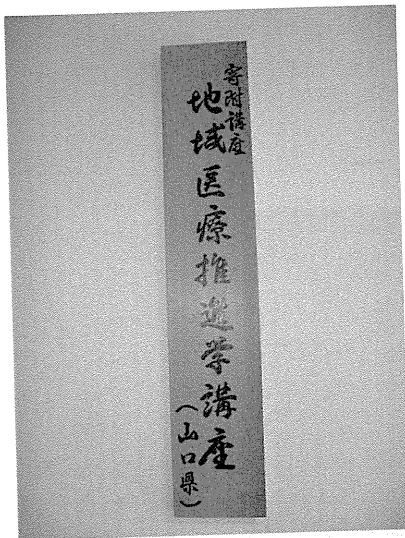 寄附講座
地域医療推進学講座
（山口県）